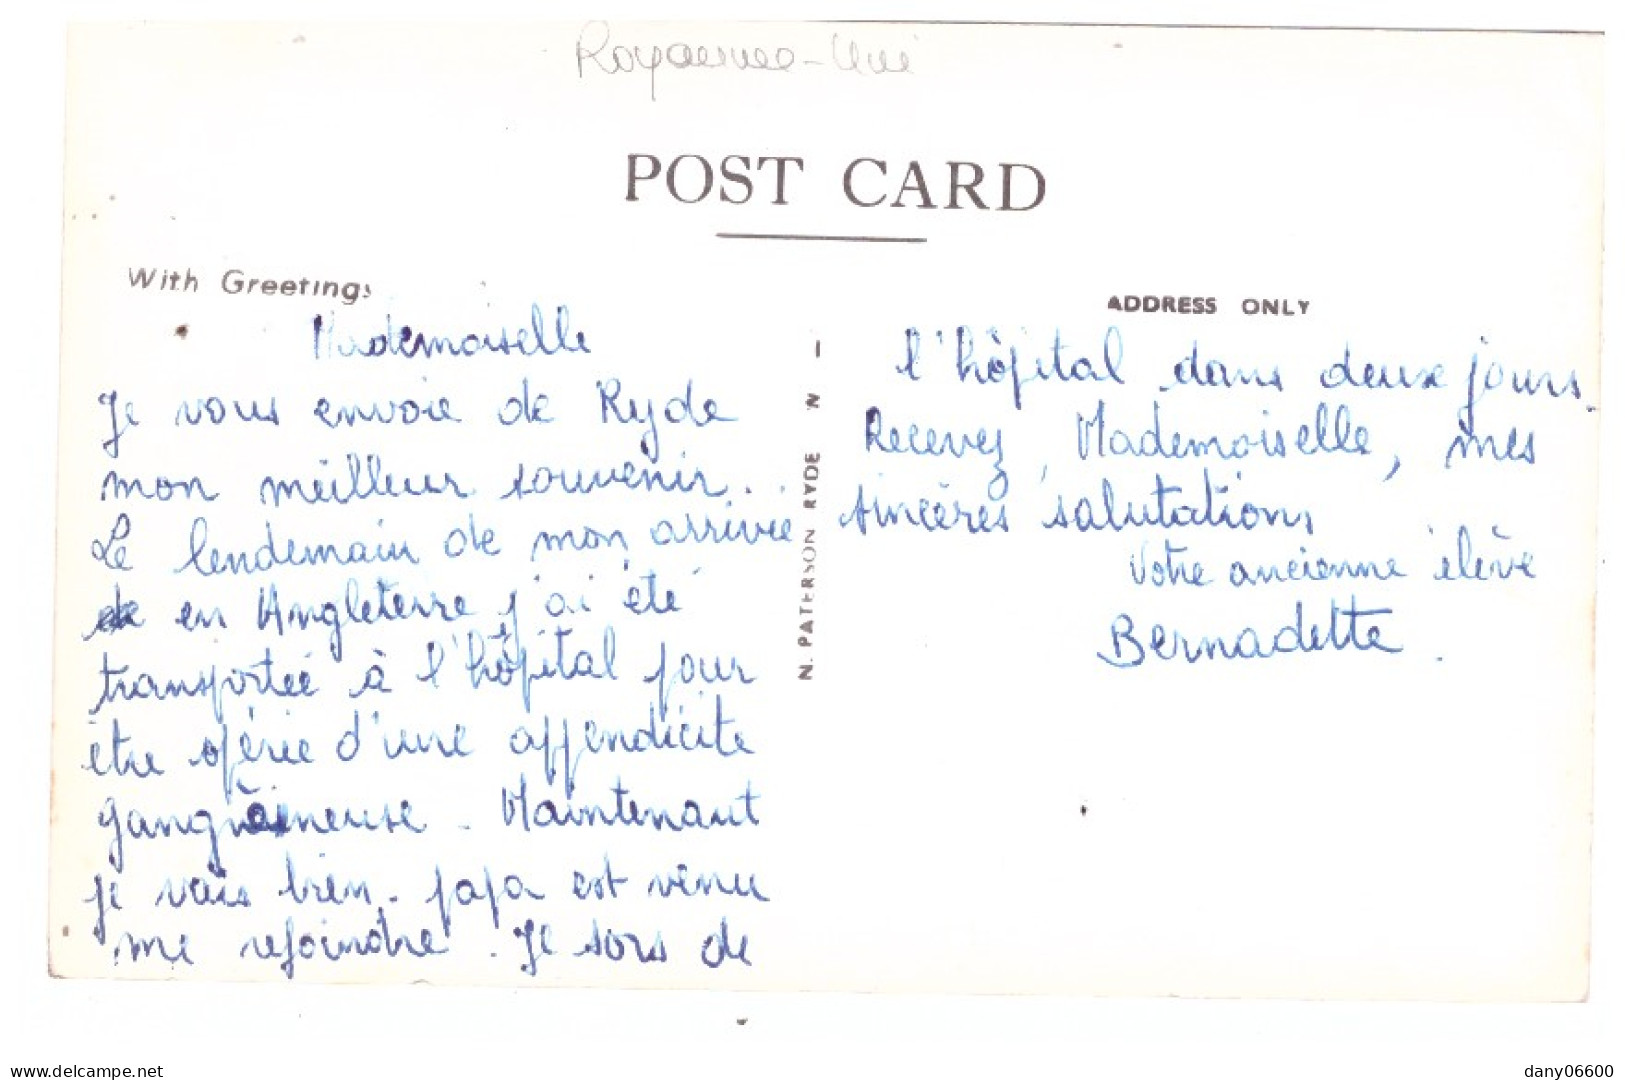 Royaume-Uni
POST CARD
With Greetings
ADDRESS ONLY
Mademoiselle
Je vous envoie de Ryde
mon meilleur souvenir.
Le lendemain de mon arrivée
en Angleterre j'ai été
transportée à l'hôpital pour
être opérée d'une appendicite
gangraineuse. Maintenant
je vais bien. papa est venu
me rejoindre. Je sors de
N. PATERSON RYDE 'N I
l'hôpital dans deux jours.
Recevez, Mademoiselle, mes
sincères salutations
Votre ancienne élève
Bernadette.
delcampe.net
dany06600